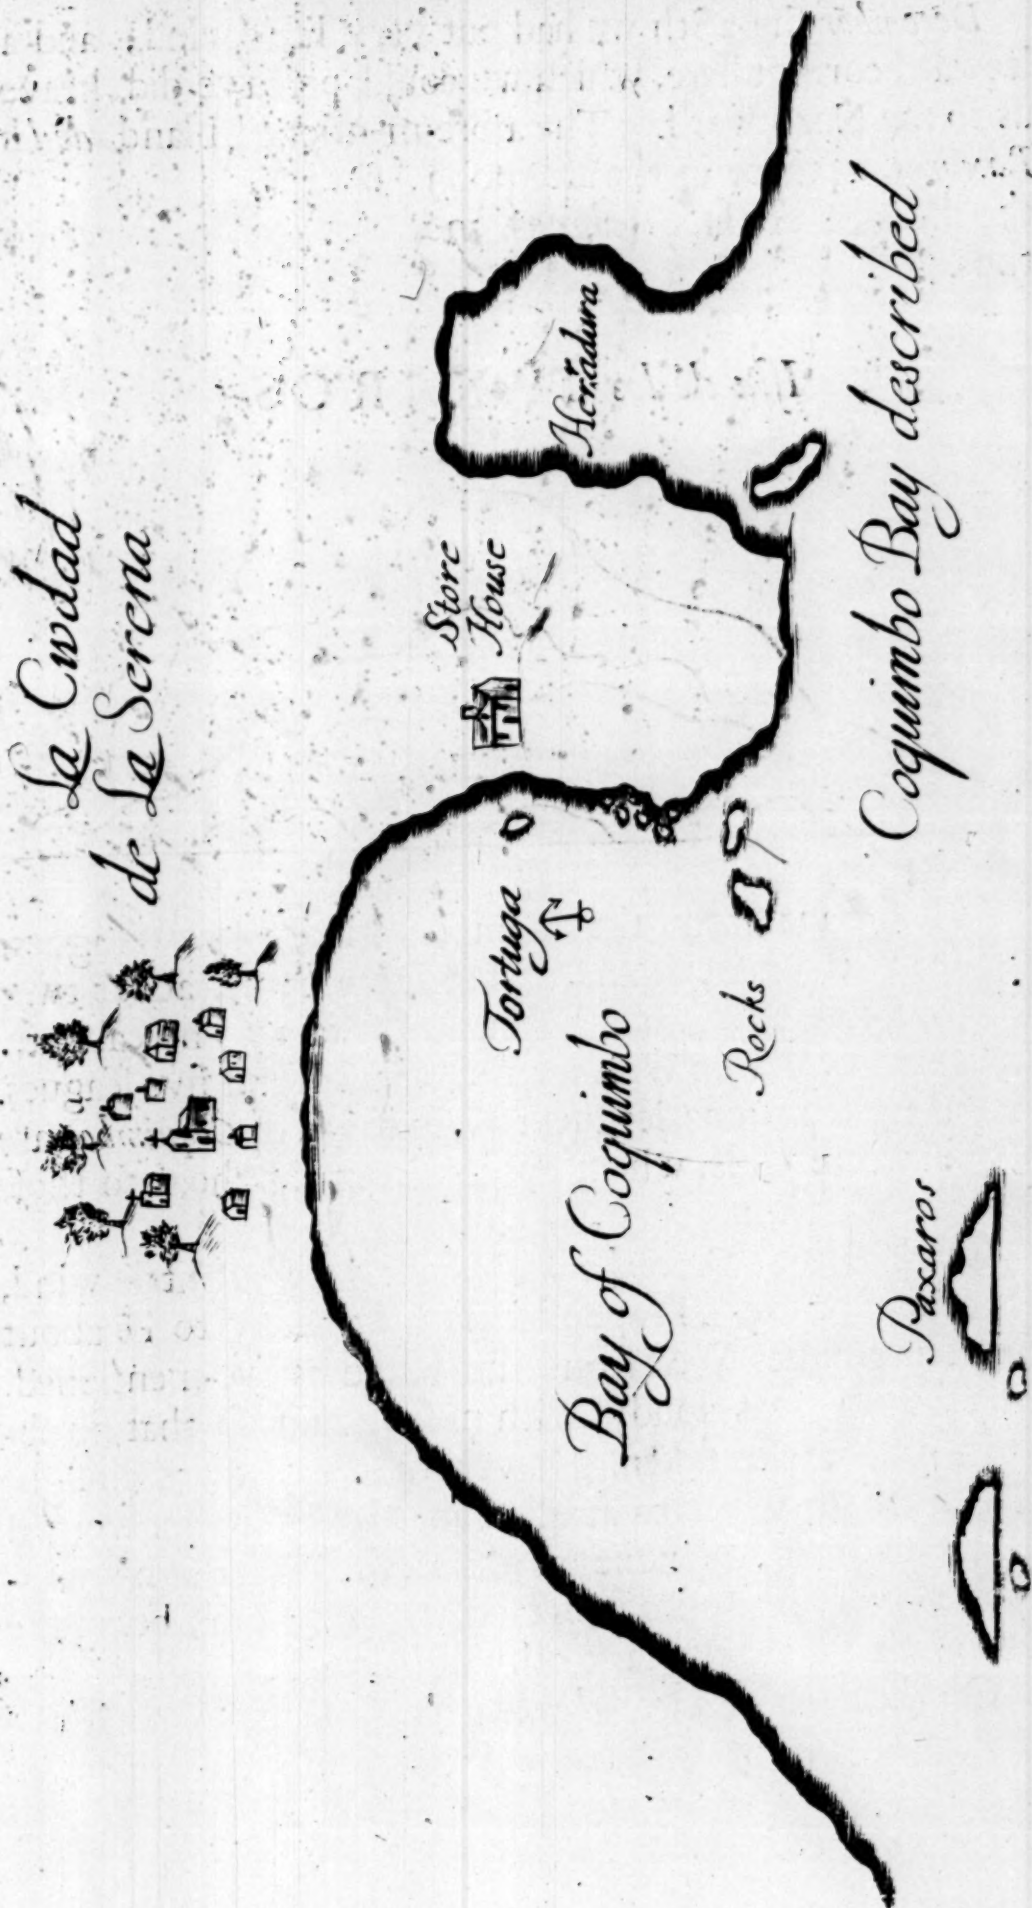 La Ciudad
de La Serena
Store
House
Herradura
Tortuga
Bay of Coquimbo
Rocks
Paxaros
Coquimbo Bay described